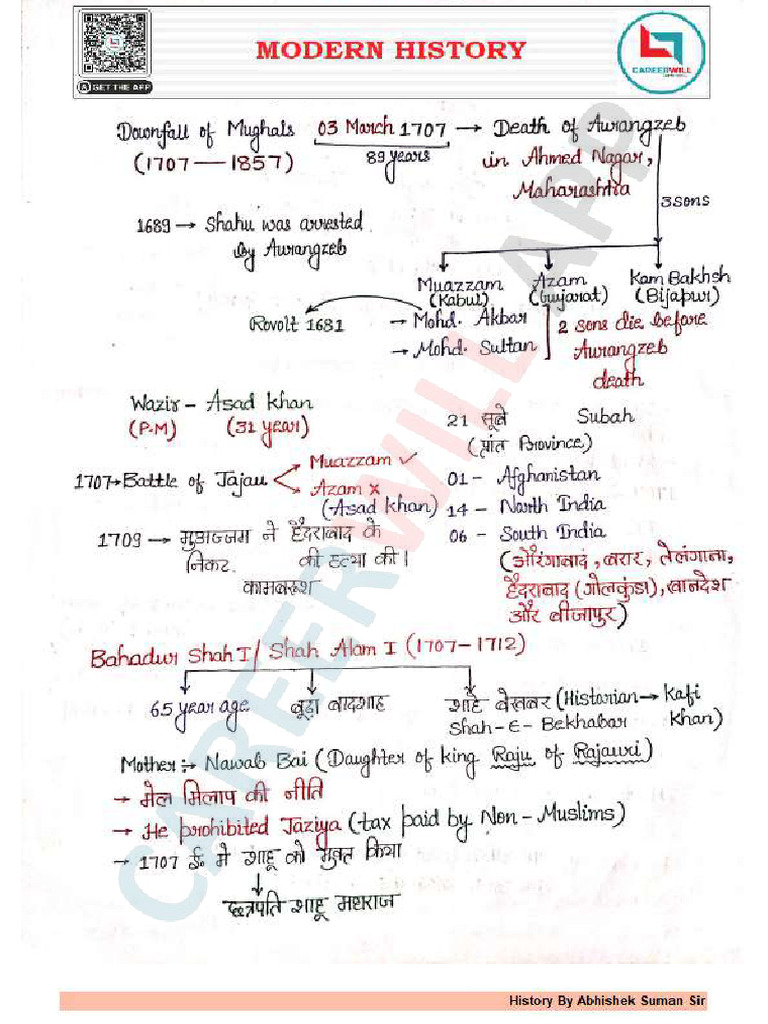 GET THE APP
MODERN HISTORY
CAREERWILL
Downfall of Mughals 03 March 1707 → Death of Aurangzeb
(1707 — 1857) 89 years in Ahmed Nagar,
Maharashtra
3 sons
1689 → Shahu was arrested
by Aurangzeb
Muazzam Azam Kam Bakhsh
(Kabul) (Gujarat) (Bijapur)
Rovolt 1681 → Mohd. Akbar 2 sons die before
→ Mohd. Sultan Aurangzeb
death
Wazir – Asad Khan 21 सूबे Subah
(P.M) (31 year) (प्रांत Province)
1707→Battle of Jajau Muazzam ✓ 01 – Afghanistan
Azam x
(Asad khan) 14 – North India
1709 → मुअज्जम ने हैदराबाद के 06 – South India
निकट की हत्या की। (औरंगाबाद, बरार, तेलंगाना,
कामबख्श हैदराबाद (गोलकुंडा), खानदेश
और बीजापुर)
Bahadur Shah I / Shah Alam I (1707-1712)
65 year age बूढ़ा बादशाह शाहे बेखबर (Historian → Kafi
Shah-E-Bekhabar Khan)
Mother :- Nawab Bai (Daughter of king Raju of Rajauri)
→ मेल मिलाप की नीति
→ He prohibited Jaziya (tax paid by Non-Muslims)
→ 1707 ई. मे शाहू को मुक्त किया
↓
छत्रपति शाहू महाराज
CAREERWILL APP
History By Abhishek Suman Sir